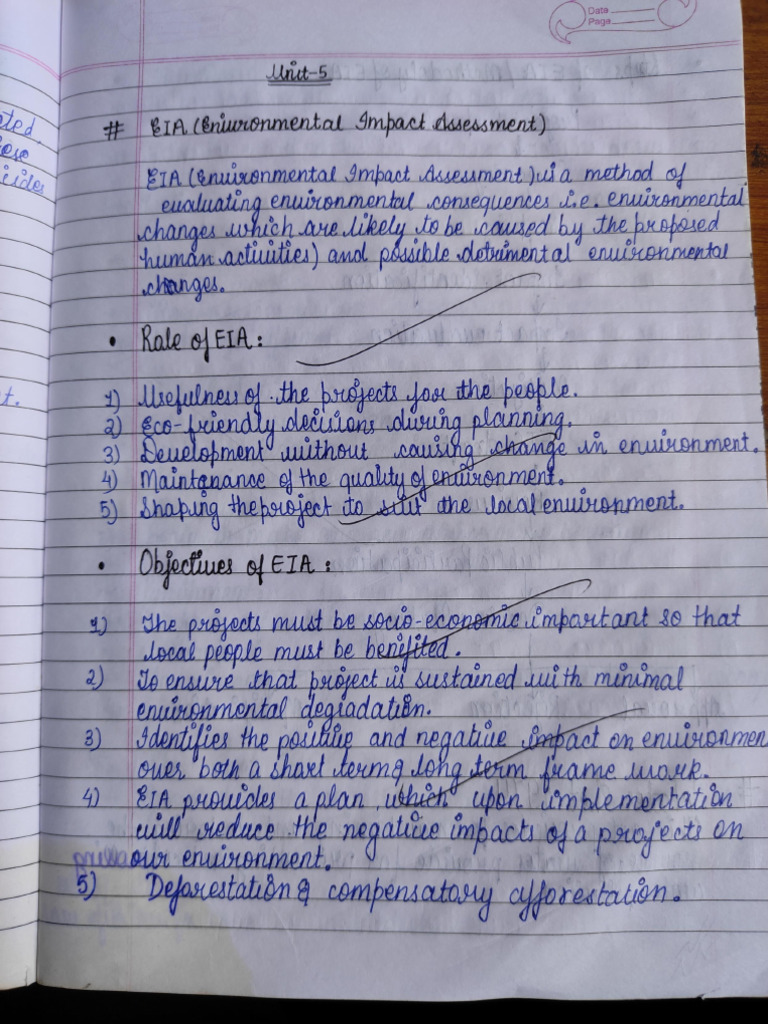 Date
Page
Unit-5
# EIA (Eniuronmental Impact Assessment)
EIA (Environmental Impact Assessment) is a method of
evaluating environmental consequences i.e. environmental
changes which are likely to be caused by the proposed
human activities) and possible detrimental environmental
changes.
• Role of EIA :
1) Usefulness of the projects for the people.
2) Eco-friendly decisions during planning.
3) Development without causing change in environment.
4) Maintanance of the quality of environment.
5) Shaping the project to suit the local environment.
• Objectives of EIA :
1) The projects must be socio-economic important so that
local people must be benifited.
2) To ensure that project is sustained with minimal
environmental degradation.
3) Identifies the positive and negative impact on environmen
over both a short term & long term frame work.
4) EIA provides a plan which upon implementation
will reduce the negative impacts of a projects on
our environment.
5) Deforestation & compensatory afforestation.
ated
icides
t.